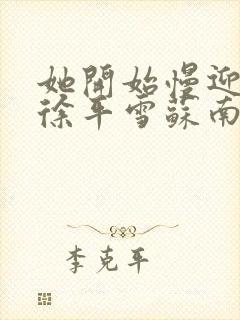 她開始慢迎
徐平雪蘇南
李克平